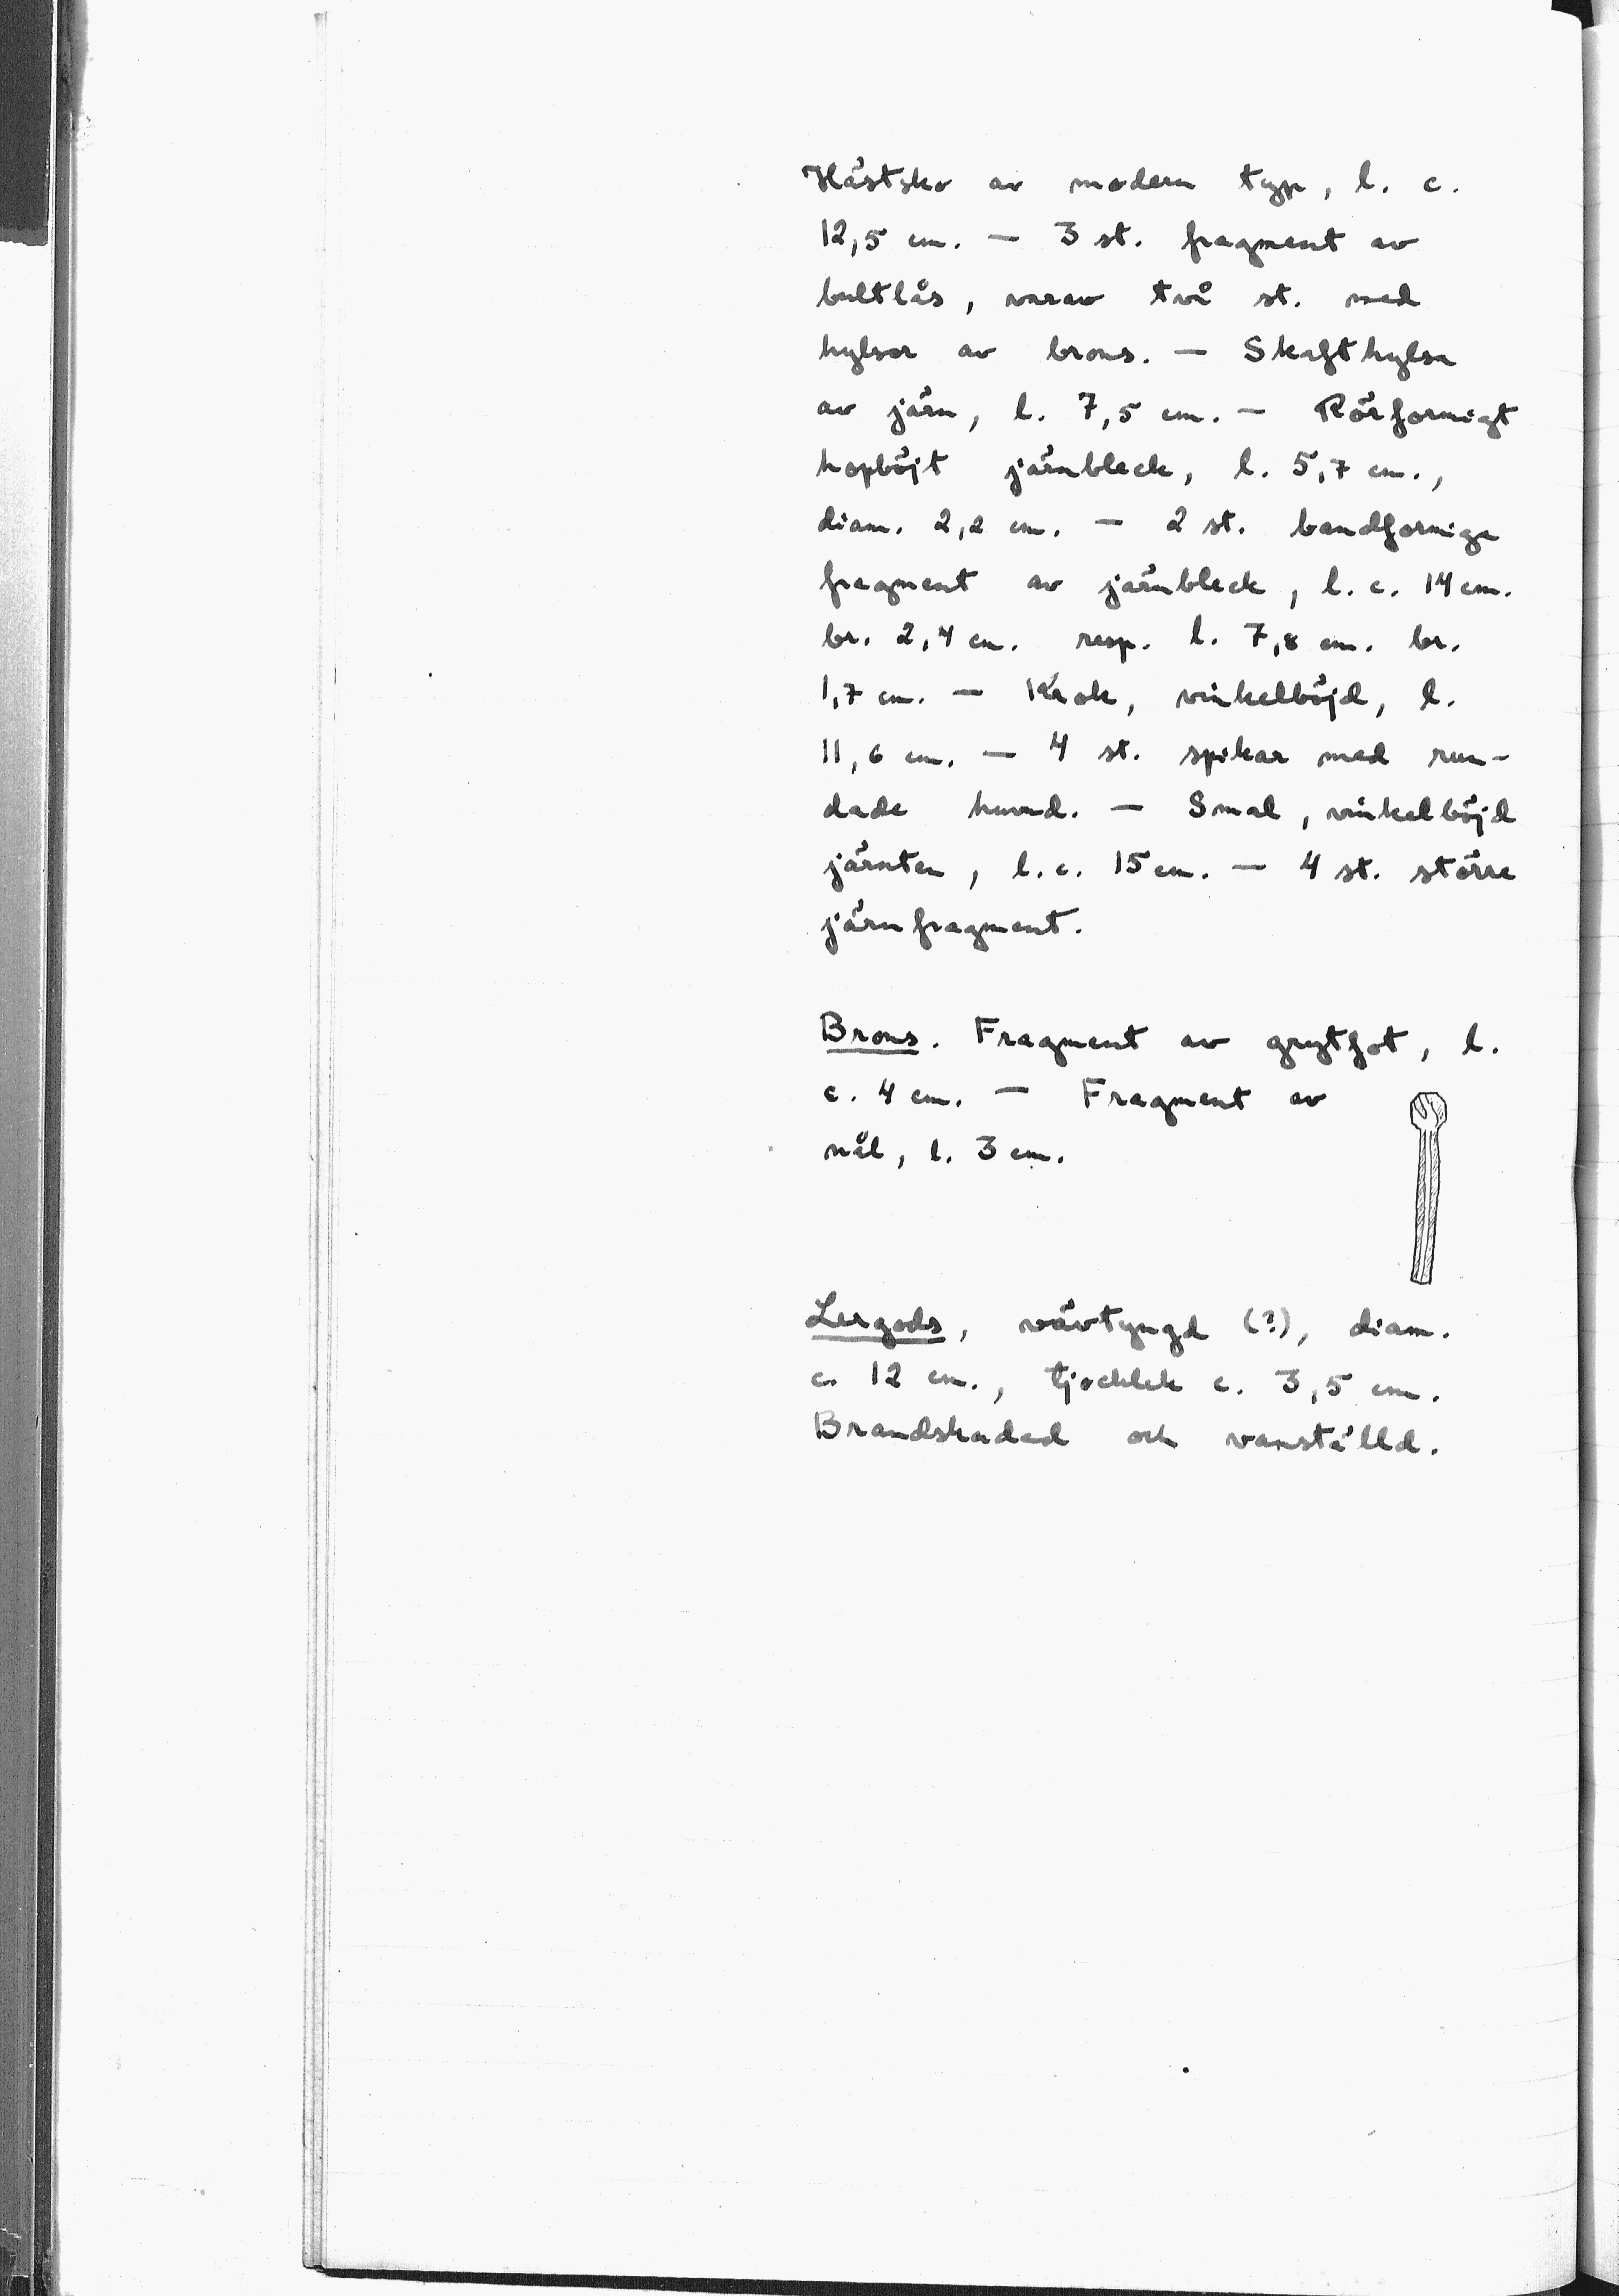 Hästsko av modern typ, l. c.
12,5 cm. — 3 st. fragment av
bultlås, varav två st. med
hylsor av brons. — Skafthylsa
av järn, l. 7,5 cm. — Rörformigt
hopböjt järnbleck, l. 5,7 cm.,
diam. 2,2 cm. — 2 st. bandformiga
fragment av järnbleck, l. c. 14 cm.
br. 2,4 cm. resp. l. 7,8 cm. br.
1,7 cm. — Krok, vinkelböjd, l.
11,6 cm. — 4 st. spikar med run-
dade huvud. — Smal, vinkelböjd
järnten, l. c. 15 cm. — 4 st. större
järnfragment.
Brons. Fragment av grytfot, l.
c. 4 cm. — Fragment av
nål, l. 3 cm.
Lergods, vävtyngd (?), diam.
c. 12 cm., tjocklek c. 3,5 cm.
Brandskadad och vanställd.